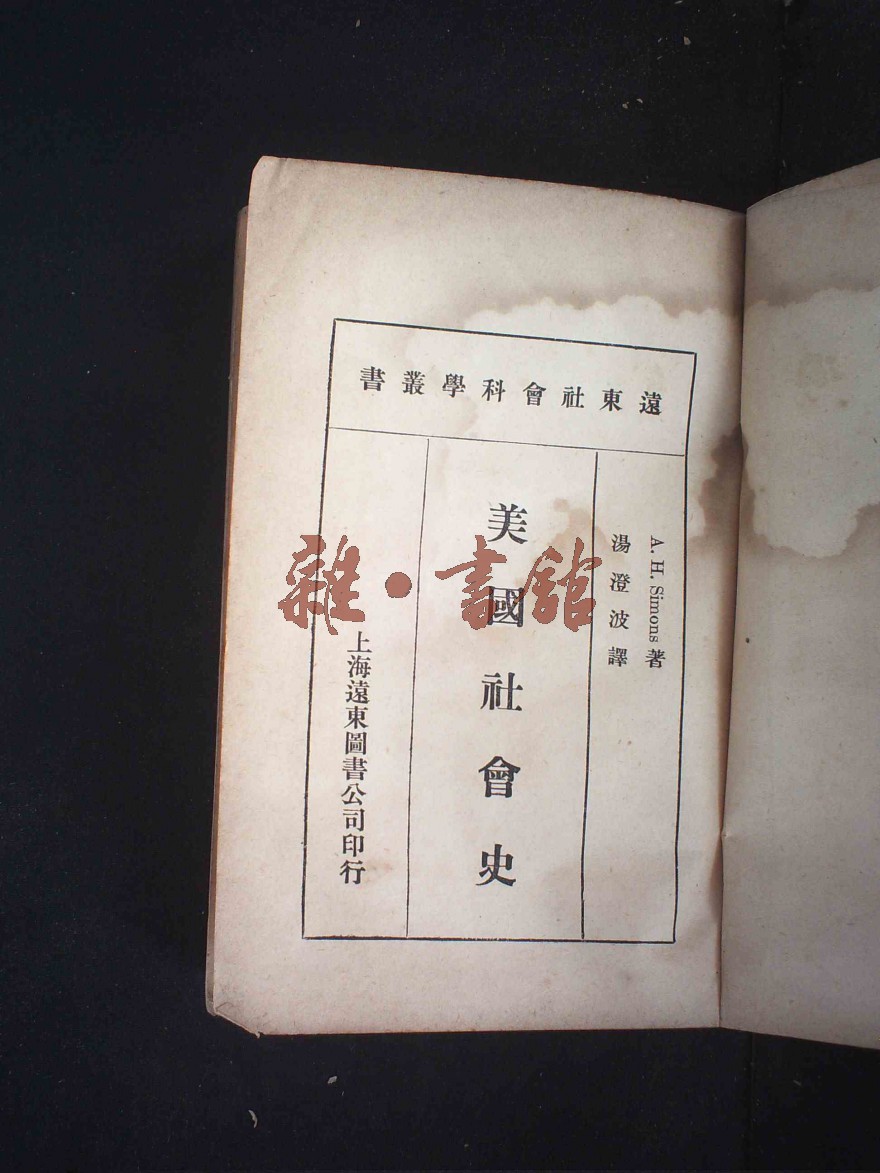 遠東社會科學叢書
A. H. Simons 著
湯澄波譯
美國社會史
上海遠東圖書公司印行
雜·書館